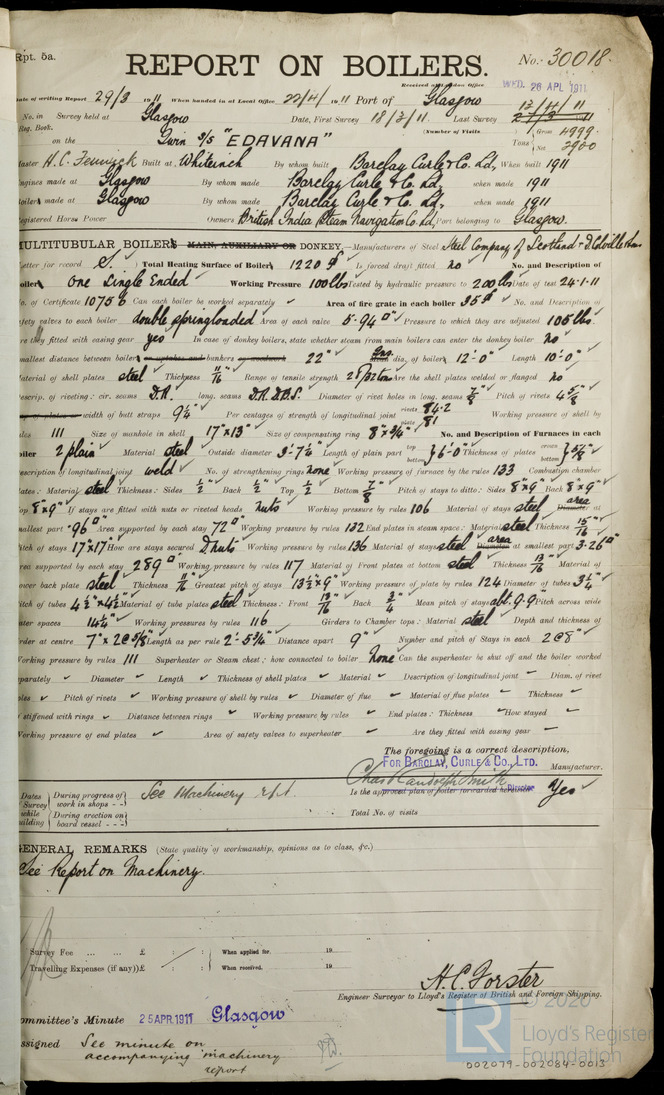 Rpt. 5a.
REPORT ON BOILERS.
No. 30018.
Received at London Office WED. 26 APL 1911
Date of writing Report 29/3 1911 When handed in at Local Office 22/4/1911 Port of Glasgow
No. in Survey held at Glasgow Date, First Survey 18/3/11. Last Survey 13/4/11
Reg. Book. (Number of Visits 1 Gross 4999.
on the Twin S/S "EDAVANA" Tons Net 2900
Master H.C. Fenwick Built at Whiteinch By whom built Barclay Curle & Co. Ld, When built 1911
Engines made at Glasgow By whom made Barclay Curle & Co. Ld. when made 1911
Boilers made at Glasgow By whom made Barclay Curle & Co. Ld, when made 1911
Registered Horse Power Owners British India Steam Navigation Co. Ld, Port belonging to Glasgow.
MULTITUBULAR BOILERS MAIN, AUXILIARY OR DONKEY.—Manufacturers of Steel Steel Company of Scotland & D Colville & Sons
Letter for record S. Total Heating Surface of Boilers 1220 Is forced draft fitted no No. and Description of
Boilers One Single Ended Working Pressure 100 lbs Tested by hydraulic pressure to 200 lbs Date of test 24.1.11
No. of Certificate 10758 Can each boiler be worked separately Area of fire grate in each boiler 35 No. and Description of
safety valves to each boiler double spring loaded Area of each valve 5.94 Pressure to which they are adjusted 105 lbs.
Are they fitted with easing gear yes In case of donkey boilers, state whether steam from main boilers can enter the donkey boiler no
Smallest distance between boilers or uptakes and bunkers or woodwork 22" dia. of boilers 12'-0" Length 10'-0"
Material of shell plates steel Thickness 11/16" Range of tensile strength 28/32 tons Are the shell plates welded or flanged no
Descrip. of riveting: cir. seams D.R. long. seams D.R.D.B.S. Diameter of rivet holes in long. seams 7/8" Pitch of rivets 4 5/8"
Lap of plates or width of butt straps 9 1/4" Per centages of strength of longitudinal joint rivets 84.2 plate 81 Working pressure of shell by
rules 111 Size of manhole in shell 17"x13" Size of compensating ring 8"x3/4" No. and Description of Furnaces in each
boiler 2 plain Material steel Outside diameter 3'-7 1/4" Length of plain part top bottom 6'-0" Thickness of plates crown bottom 5/8"
Description of longitudinal joint weld No. of strengthening rings none Working pressure of furnace by the rules 133 Combustion chamber
plates: Material steel Thickness: Sides 1/2" Back 1/2" Top 1/2" Bottom 7/8" Pitch of stays to ditto: Sides 8"x9" Back 8"x9"
Top 8"x9" If stays are fitted with nuts or riveted heads nuts Working pressure by rules 106 Material of stays steel Diameter area at
smallest part .96 Area supported by each stay 72 Working pressure by rules 132 End plates in steam space: Material steel Thickness 15/16"
Pitch of stays 17"x17" How are stays secured D. nuts Working pressure by rules 136 Material of stays steel Diameter area at smallest part 3.26
Area supported by each stay 289 Working pressure by rules 117 Material of Front plates at bottom steel Thickness 13/16" Material of
Lower back plate steel Thickness 11/16" Greatest pitch of stays 13 1/2"x9" Working pressure of plate by rules 124 Diameter of tubes 3 1/4"
Pitch of tubes 4 1/2"x4 1/2" Material of tube plates steel Thickness: Front 13/16" Back 3/4" Mean pitch of stays abt. 9.9 Pitch across wide
water spaces 14 1/4" Working pressures by rules 116 Girders to Chamber tops: Material steel Depth and thickness of
girder at centre 7"x 2@5/8" Length as per rule 2'-5 3/4" Distance apart 9" Number and pitch of Stays in each 2@8"
Working pressure by rules 111 Superheater or Steam chest; how connected to boiler None Can the superheater be shut off and the boiler worked
separately Diameter Length Thickness of shell plates Material Description of longitudinal joint Diam. of rivet
holes Pitch of rivets Working pressure of shell by rules Diameter of flue Material of flue plates Thickness
If stiffened with rings Distance between rings Working pressure by rules End plates: Thickness How stayed
Working pressure of end plates Area of safety valves to superheater Are they fitted with easing gear
The foregoing is a correct description,
FOR BARCLAY, CURLE & CO., LTD. Manufacturer.
Chas Randolph Smith Director
Dates of Survey while building During progress of work in shops - - During erection on board vessel - - - See Machinery rpt. Is the approved plan of boiler forwarded herewith Yes
Total No. of visits
GENERAL REMARKS (State quality of workmanship, opinions as to class, &c.)
See Report on Machinery.
Survey Fee ... ... £ : : When applied for. 19
Travelling Expenses (if any) £ : : When received. 19
H.C. Forster
Engineer Surveyor to Lloyd's Register of British and Foreign Shipping.
Committee's Minute 25 APR. 1911 Glasgow
Assigned See minute on
accompanying machinery
report
© 2020
LR
Lloyd's Register
Foundation
002079-002084-0013